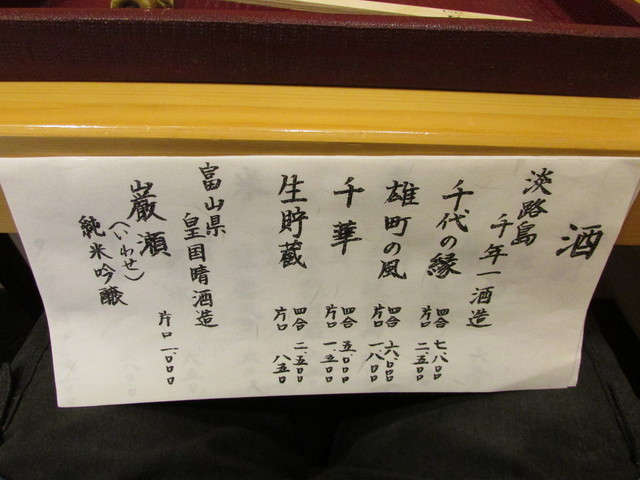 酒
淡路島
千年一酒造
千代の縁
四合 七八〇〇
片口 二.五〇〇
雄町の風
四合 六八〇〇
片口 一八〇〇
千華
四合 五.〇〇〇
片口 一.五〇〇
生貯蔵
四合 二.五〇〇
片口 八五〇
富山県
皇国晴酒造
巌瀬
(いわせ)
純米吟醸
片口 一.〇〇〇